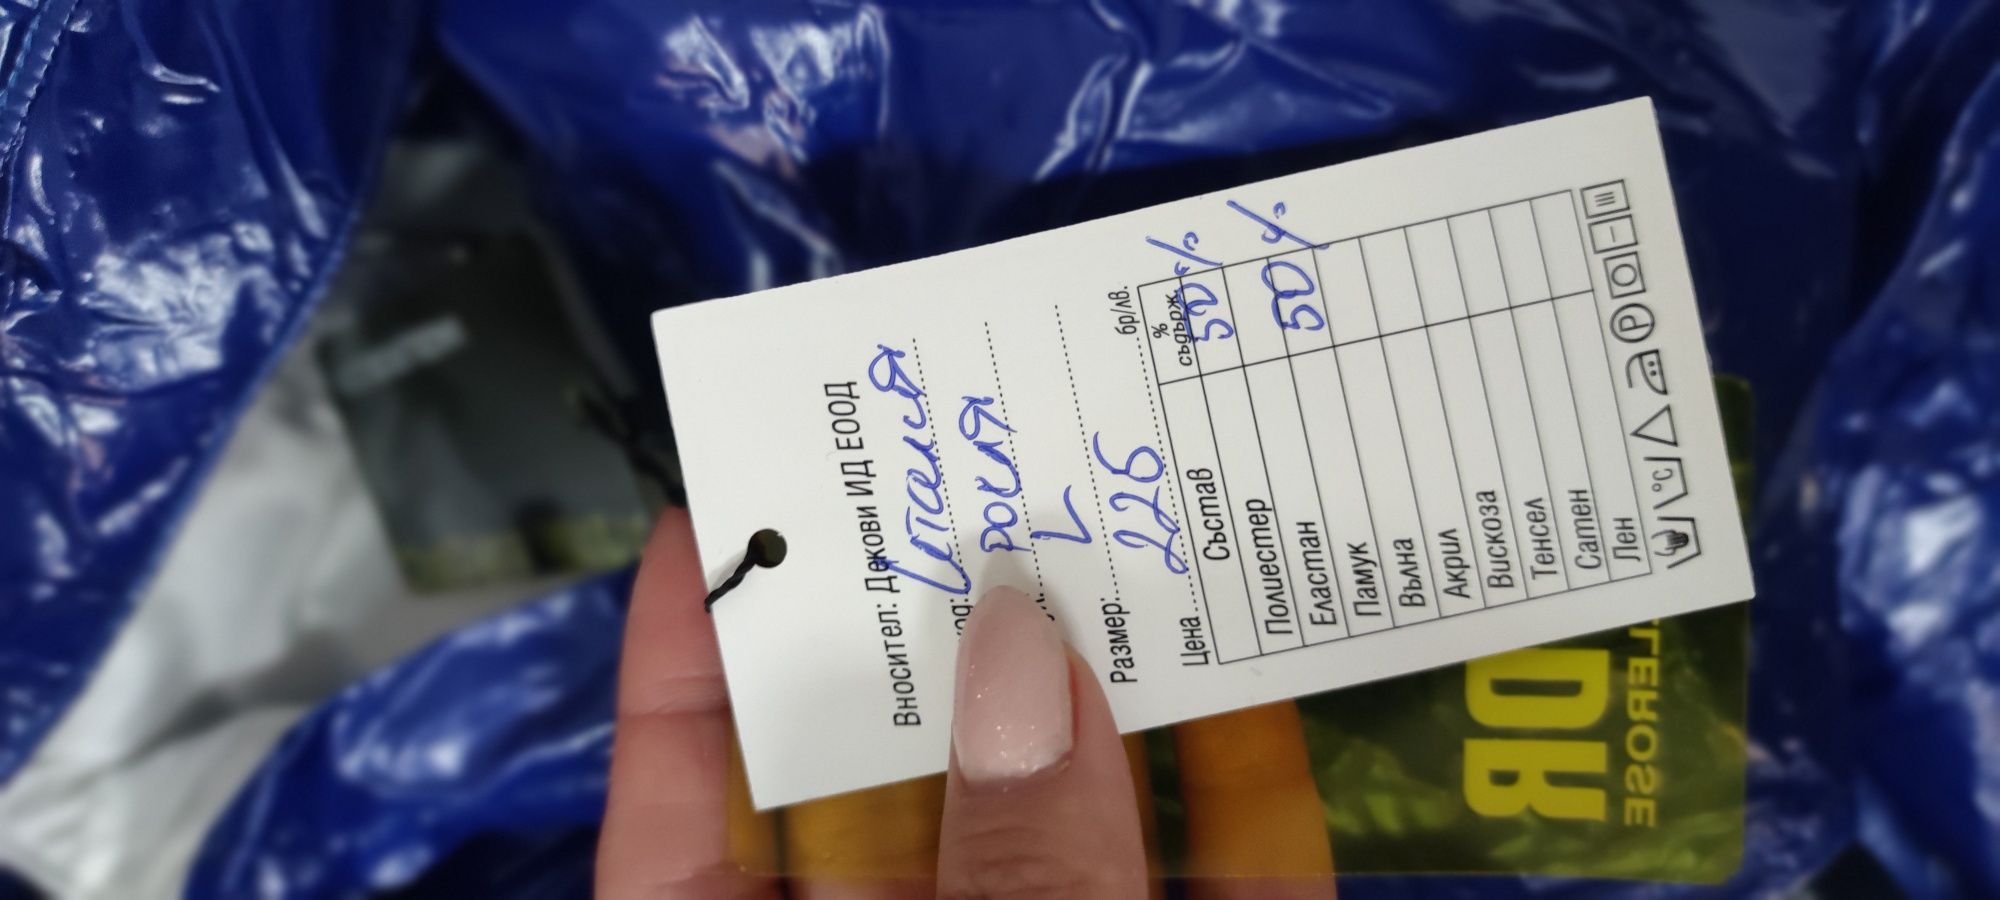 Вносител: Декови ИД ЕООД
ход: Италия
рокля
Размер: L
Цена 225 бр/лв.
Състав % съдърж.
Полиестер 50%
Еластан
Памук 50%
Вълна
Акрил
Вискоза
Тенсел
Сатен
Лен
°C P
DR
LEROSE